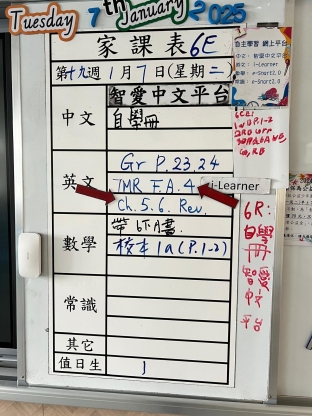 Tuesday 7th January 2025
家課表 6E
第十九週 1月7日(星期二)
中文
智愛中文平台
自學冊
英文
Gr P.23,24
TMR F.A. 4
i-Learner
Ch. 5. 6. Rev
數學
帶 6下A書.
校本 1a (P.1-2)
常識
其它
值日生
自主學習 網上平台
6R:
自學冊
智愛
中文
平台